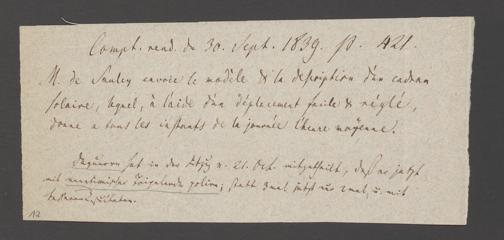 Compt. rend. de 30. Sept. 1839. p. 421.
M. de Saulcy envoie le modèle & la description d'un cadran
solaire, lequel, à l'aide d'un déplacement facile & réglé,
donne a tous les instants de la journée l'heure moyenne.
hat in der v. 21. Oct. mitgetheilt, daß er jetzt
mit polire; statt 3mal jetzt nur 2mal, u. mit
12